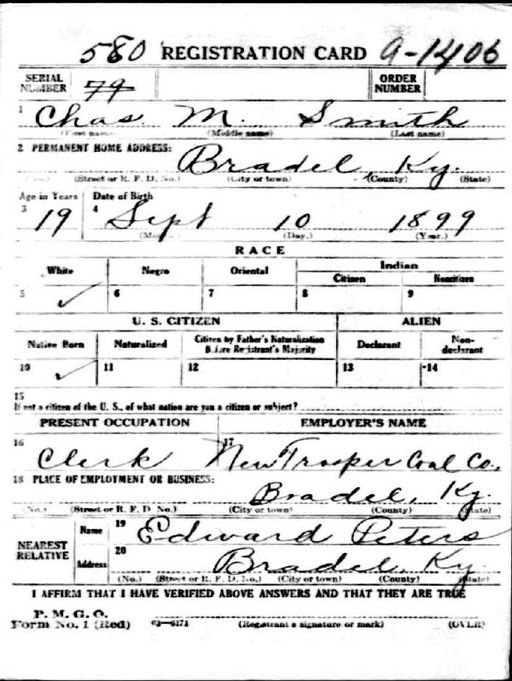 580 REGISTRATION CARD A-1406
SERIAL NUMBER 79 ORDER NUMBER
1 Chas. M. Smith
(First name) (Middle name) (Last name)
2 PERMANENT HOME ADDRESS:
Bradel, Ky.
(No.) (Street or R. F. D. No.) (City or town) (County) (State)
Age in Years Date of Birth
3 19 4 Sept 10 1899
(Month.) (Day.) (Year.)
RACE
White Negro Oriental Indian
Citizen Noncitizen
5 ✓ 6 7 8 9
U. S. CITIZEN ALIEN
Native Born Naturalized Citizen by Father's Naturalization Before Registrant's Majority Declarant Non-declarant
10 ✓ 11 12 13 14
15
If not a citizen of the U. S., of what nation are you a citizen or subject?
PRESENT OCCUPATION EMPLOYER'S NAME
16 Clerk 17 New Trosper Coal Co.
18 PLACE OF EMPLOYMENT OR BUSINESS:
Bradel, Ky.
(No.) (Street or R. F. D. No.) (City or town) (County) (State)
NEAREST RELATIVE Name 19 Edward Peters
Address 20 Bradel, Ky
(No.) (Street or R. F. D. No.) (City or town) (County) (State)
I AFFIRM THAT I HAVE VERIFIED ABOVE ANSWERS AND THAT THEY ARE TRUE
P. M. G. O.
Form No. 1 (Red) 03—6171 (Registrant's signature or mark) (OVER)